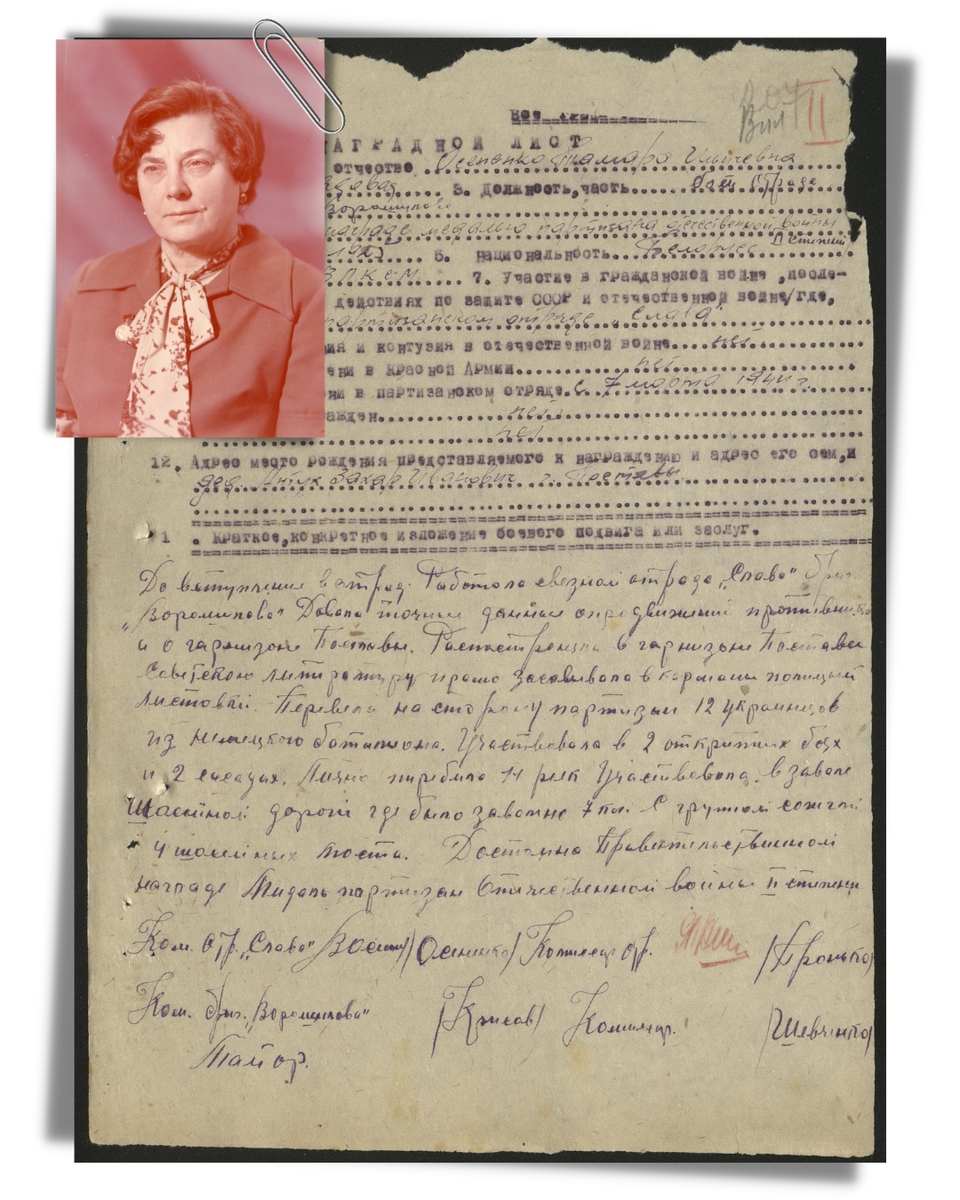 II
НАГРАДНОЙ ЛИСТ
отчество Осепенко Тамара Ильинична
3. Должность, часть
Ворошилова
награде медалью партизана отечественной войны II степени
6. Национальность
ВЛКСМ. 7. Участие в гражданской войне, после-
действиях по защите СССР и отечественной войне/где,
партизанском отряде „Слава"
ия и контузия в отечественной войне нет
ени в Красной Армии нет
ни в партизанском отряде с 7 марта 1944 г.
ажден нет
нет
12. Адрес место рождения представляемого к награждению и адрес его сем,и
Захар Иванович г. Поставы
1 . Краткое,конкретное изложение боевого подвига или заслуг.
До вступления в отряд. Работала связной отряда „Слава" бриг.
„Ворошилова" Давала точные данные о продвижении противника
и о гарнизоне Поставы. в гарнизоне Поставы
Советскою литературу прямо засовывала в карманы полицый
листовки. Перевела на сторону партизан 12 украинцов
из немецкого батальона. Участвовала в 2 открытых боях
и 2 засадах. Лично перебила 14 рек Участвовала в завале
Шассейной дороги где было завалено 7 км. С групой сожгли
4 шоссейных моста. Достойна Правительственной
награде Мидаль партизан Отечественной войны II степени
Ком. Отр. „Слава" /Осининко/ Комиссар Отр. /Пронько/
Ком. бриг. „Ворошилова" Комиссар. /Шевченко/
Майор.